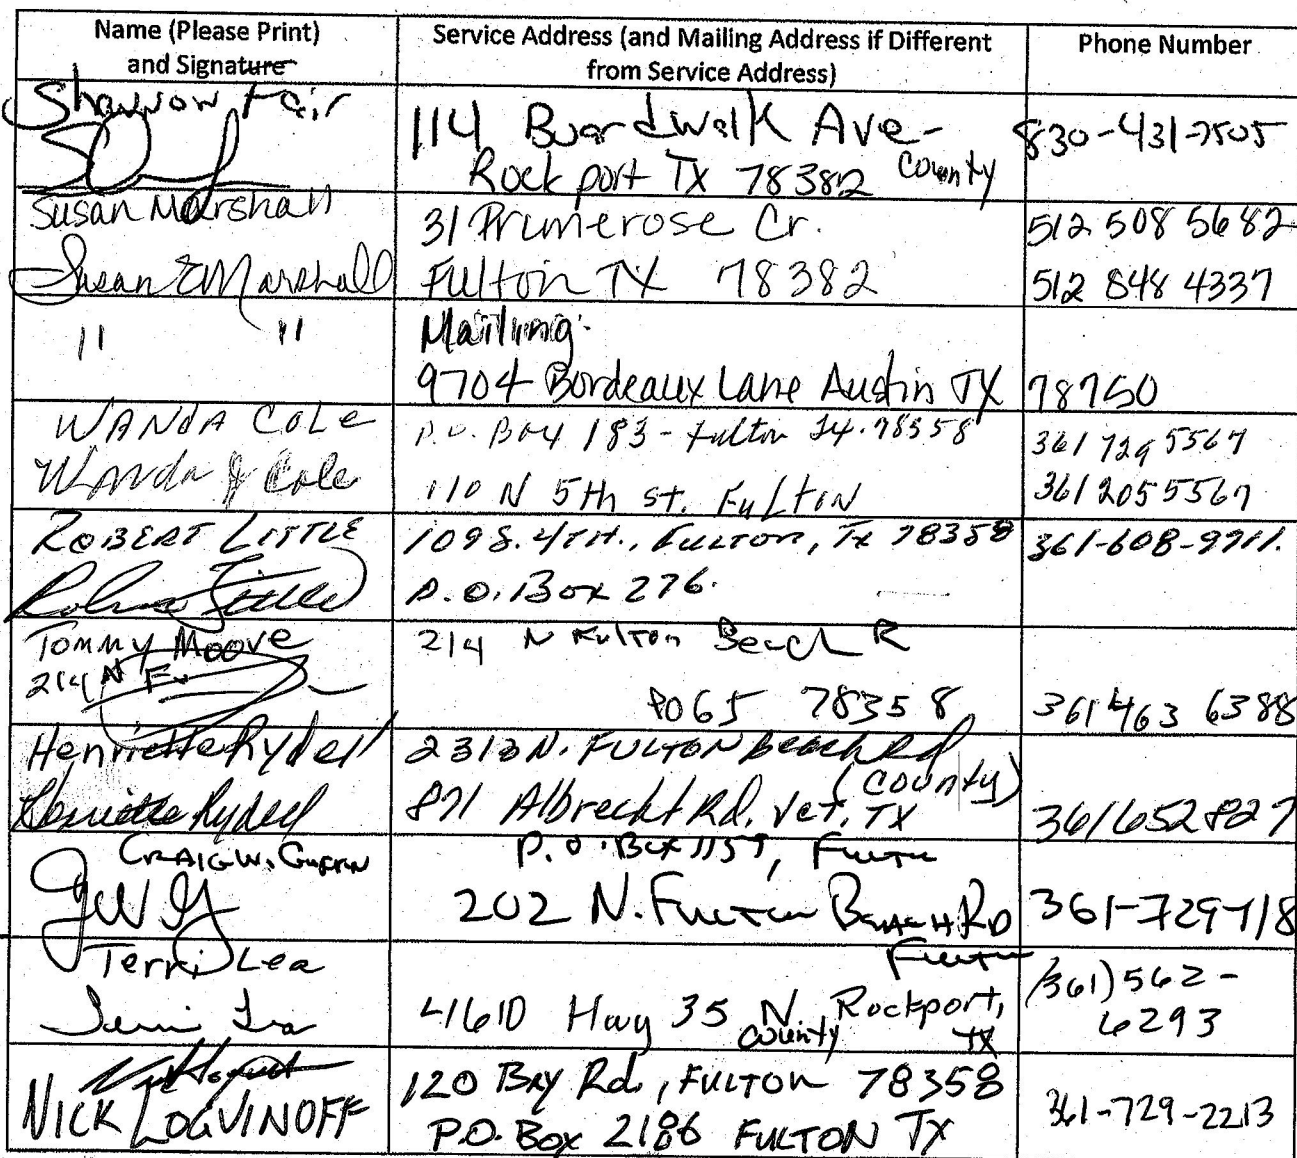 Name (Please Print)
and Signature
Service Address (and Mailing Address if Different
from Service Address)
Phone Number
Shannon Fair
114 Boardwalk Ave-
Rockport TX 78382 County
830-431-7505
Susan Marshall
Susan E Marshall
31 Primerose Cr.
Fulton TX 78382
512 508 5682
512 848 4337
" "
Mailing:
9704 Bordeaux Lane Austin TX
78750
WANDA COLE
Wanda J Cole
P.O. Box 183 - Fulton TX. 78358
110 N 5th St. Fulton
361 729 5567
361 205 5567
ROBERT LITTLE
Robert Little
109 S. 4TH., FULTON, Tx 78358
P.O. Box 276.
361-608-9711.
Tommy Moore
214 N Fu
214 N Fulton Beach R
PO65 78358
361 463 6388
Henriette Rydell
Henriette Rydell
2313 N. FULTON Beach Rd
(County)
871 Albrecht Rd. Vct. TX
361 652 827
CRAIG W. GRIFFIN
P.O. Box 1159, Fulton
202 N. FULTON BEACH RD
Fulton
361-729-718
Terri Lea
Terri Lea
4161D Hwy 35 N. Rockport,
County TX
(361) 562-
6293
NICK LOGVINOFF
120 BAY Rd, FULTON 78358
P.O. Box 2186 FULTON TX
361-729-2213